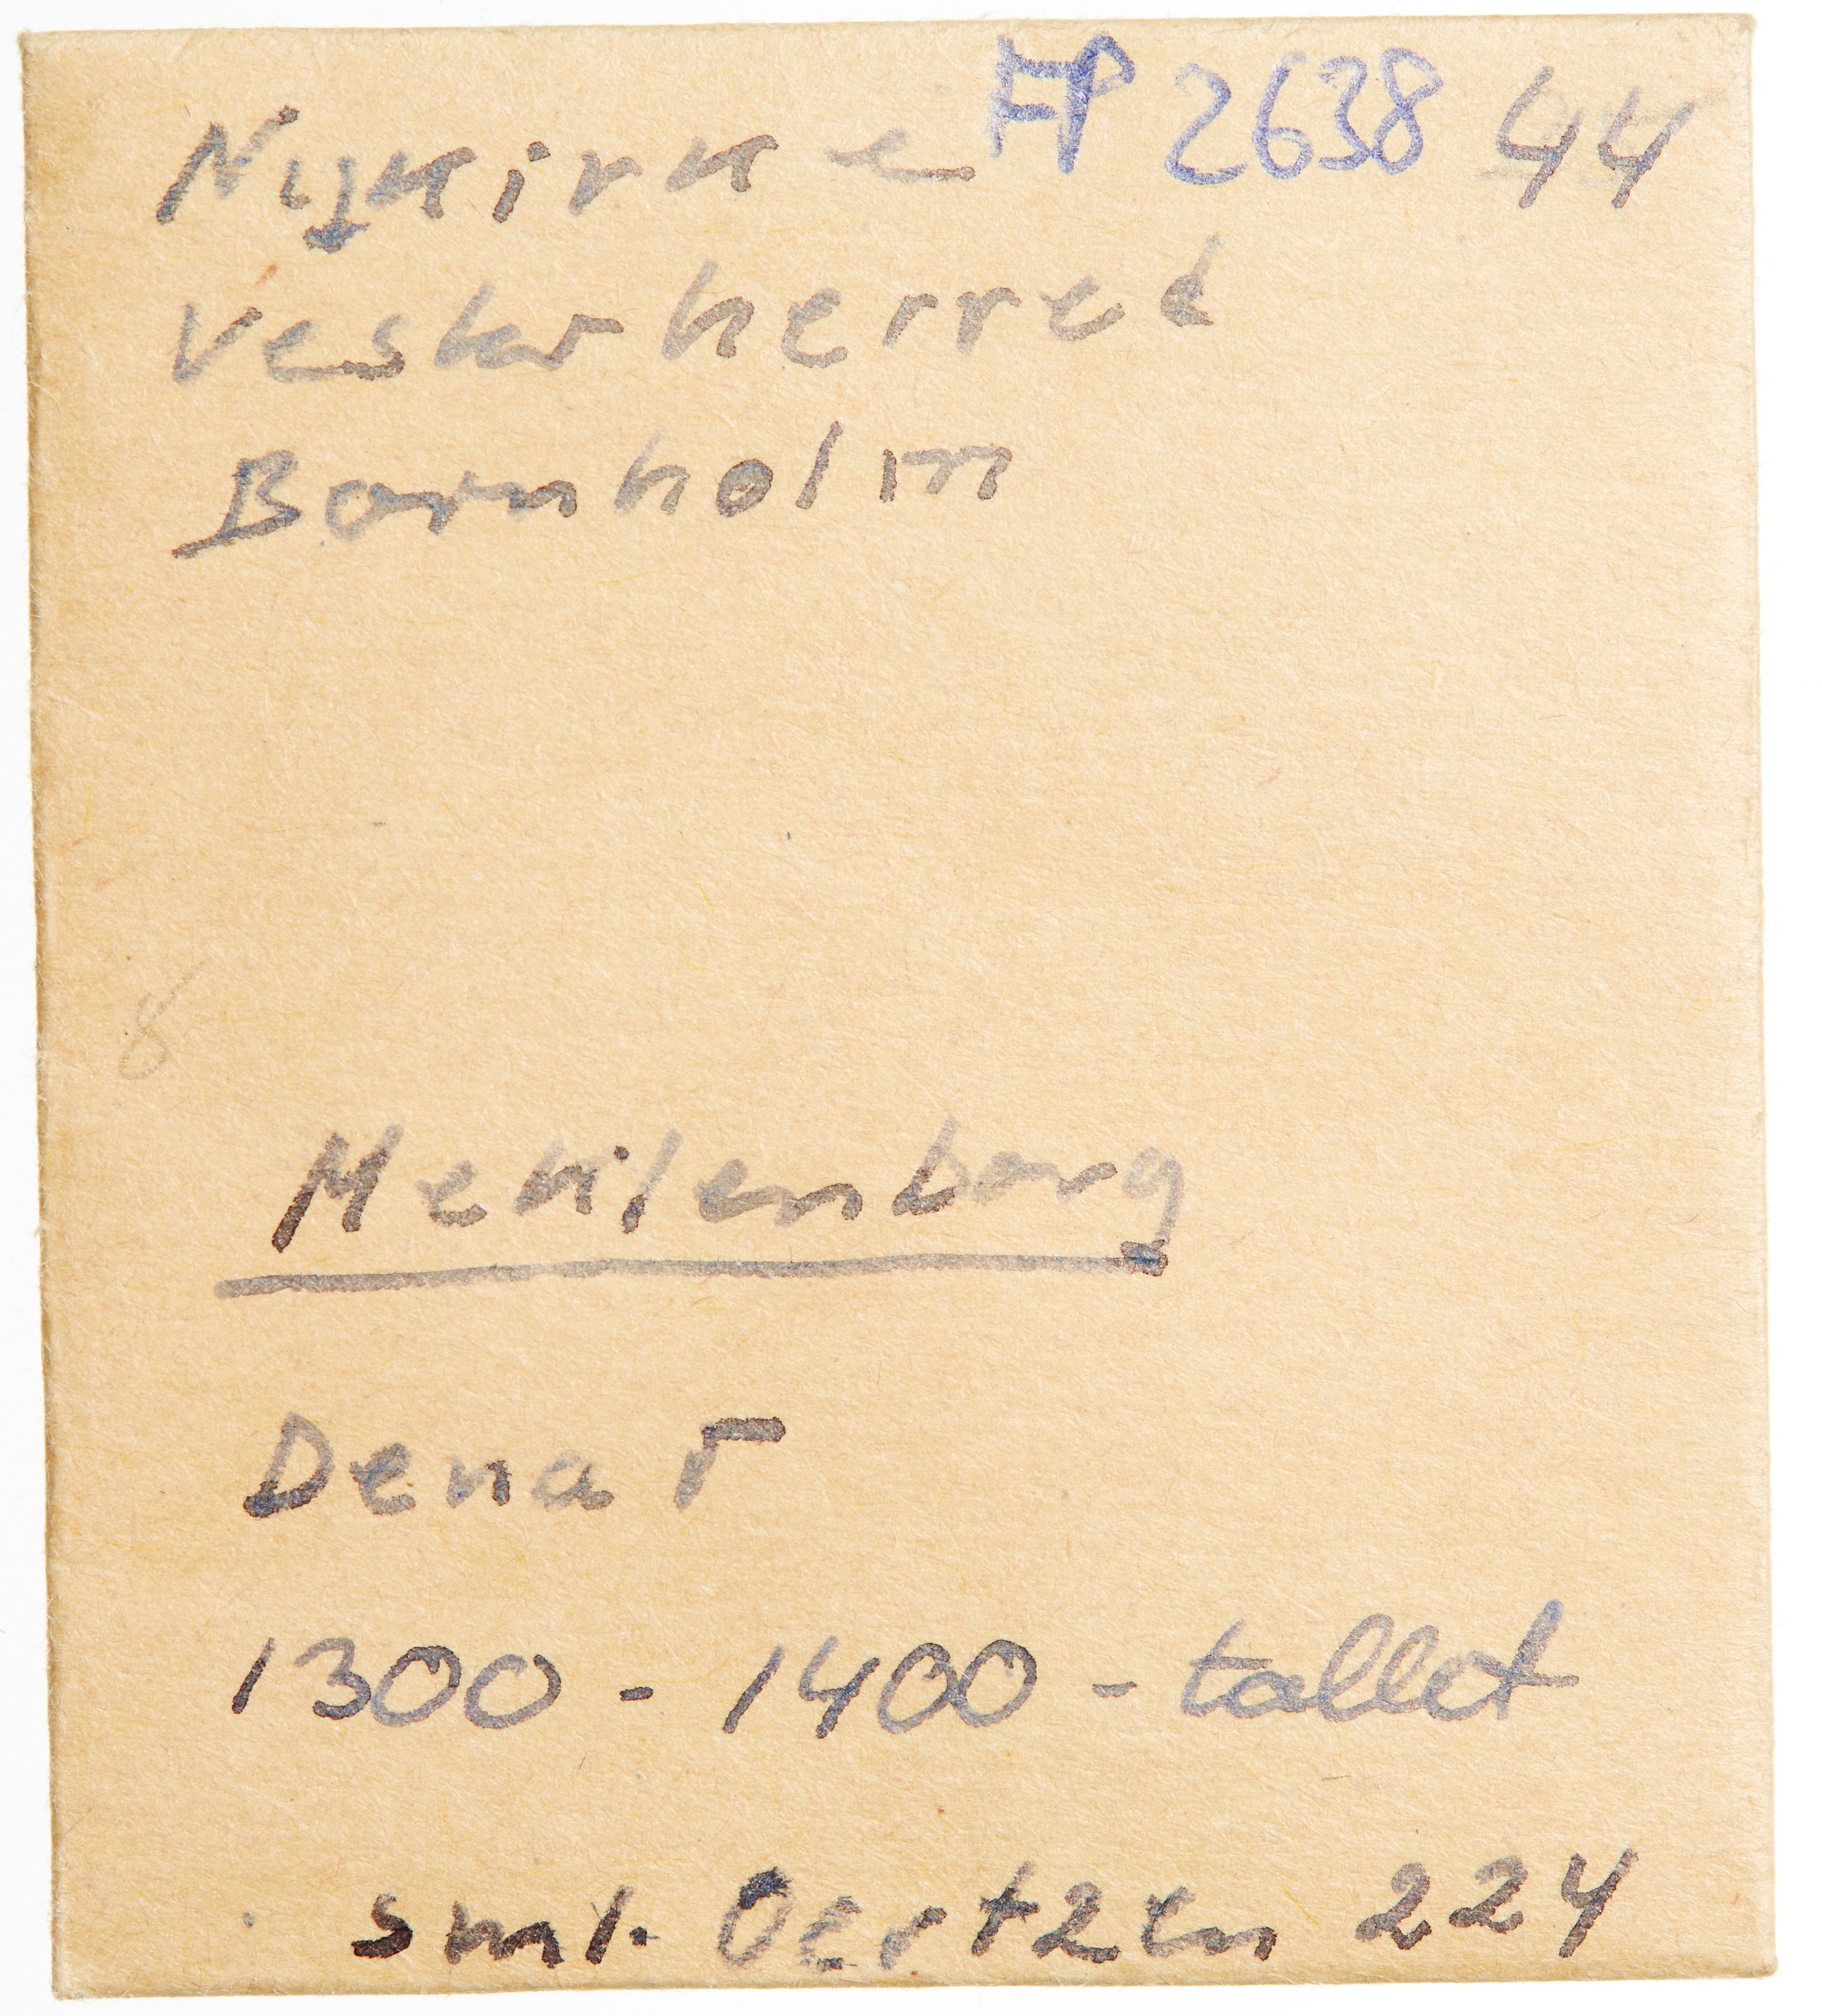 Nykirke FP 2638 44
Vesterherred
Bornholm
8
Meklenborg
Denar
1300-1400-tallet
sml. Oertzen 224